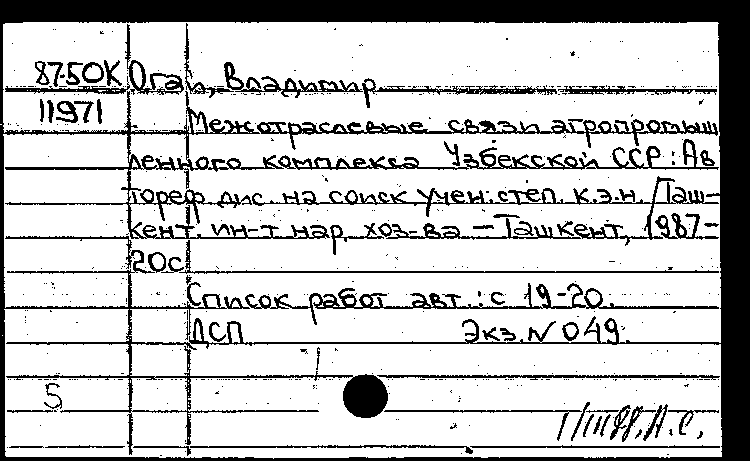 87-5ОК Огай, Владимир
11971
Межотраслевые связи агропромыш
ленного комплекса Узбекской ССР : Ав
тореф. дис. на соиск. учен. степ. к.э.н. / Таш-
кент. ин-т нар. хоз-ва — Ташкент, 1987 -
20с
Список работ авт.: с 19-20.
ДСП Экз. N 049.
5
1/III 88. А. С.